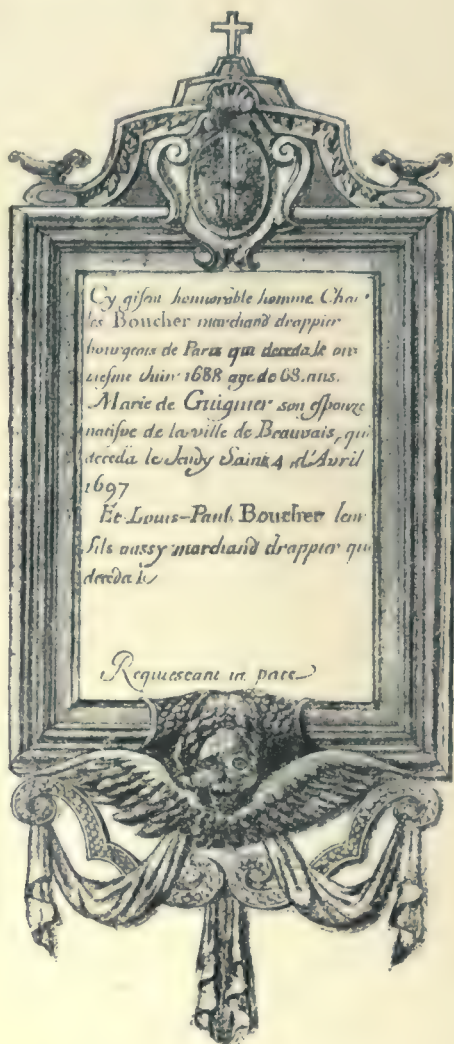 Cy gison honnorable homme Char-
les Boucher marchand drappier
bourgeois de Paris qui deceda le on-
ziesme Juin 1688 age de 68. ans.
Marie de Guignier son espouze
natifve de la ville de Beauvais, qui
deceda le Jeudy Saint 4 d'Avril
1697
Et Louis-Paul Boucher leur
fils aussy marchand drappier qui
deceda le
Requiescant in pace